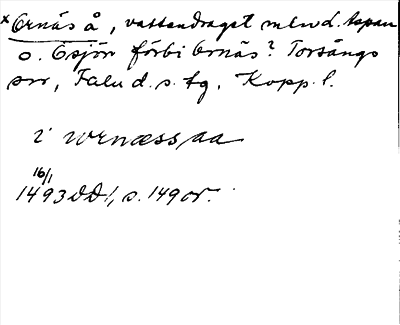 *Ornäs å, vattendraget mellan Aspan
o. Ösjön förbi Ornäs? Torsångs
snr, Falu d. s. fg. Kopp. l.
i wrnæss aa
16/1
1493 DD 1, s. 149 or.